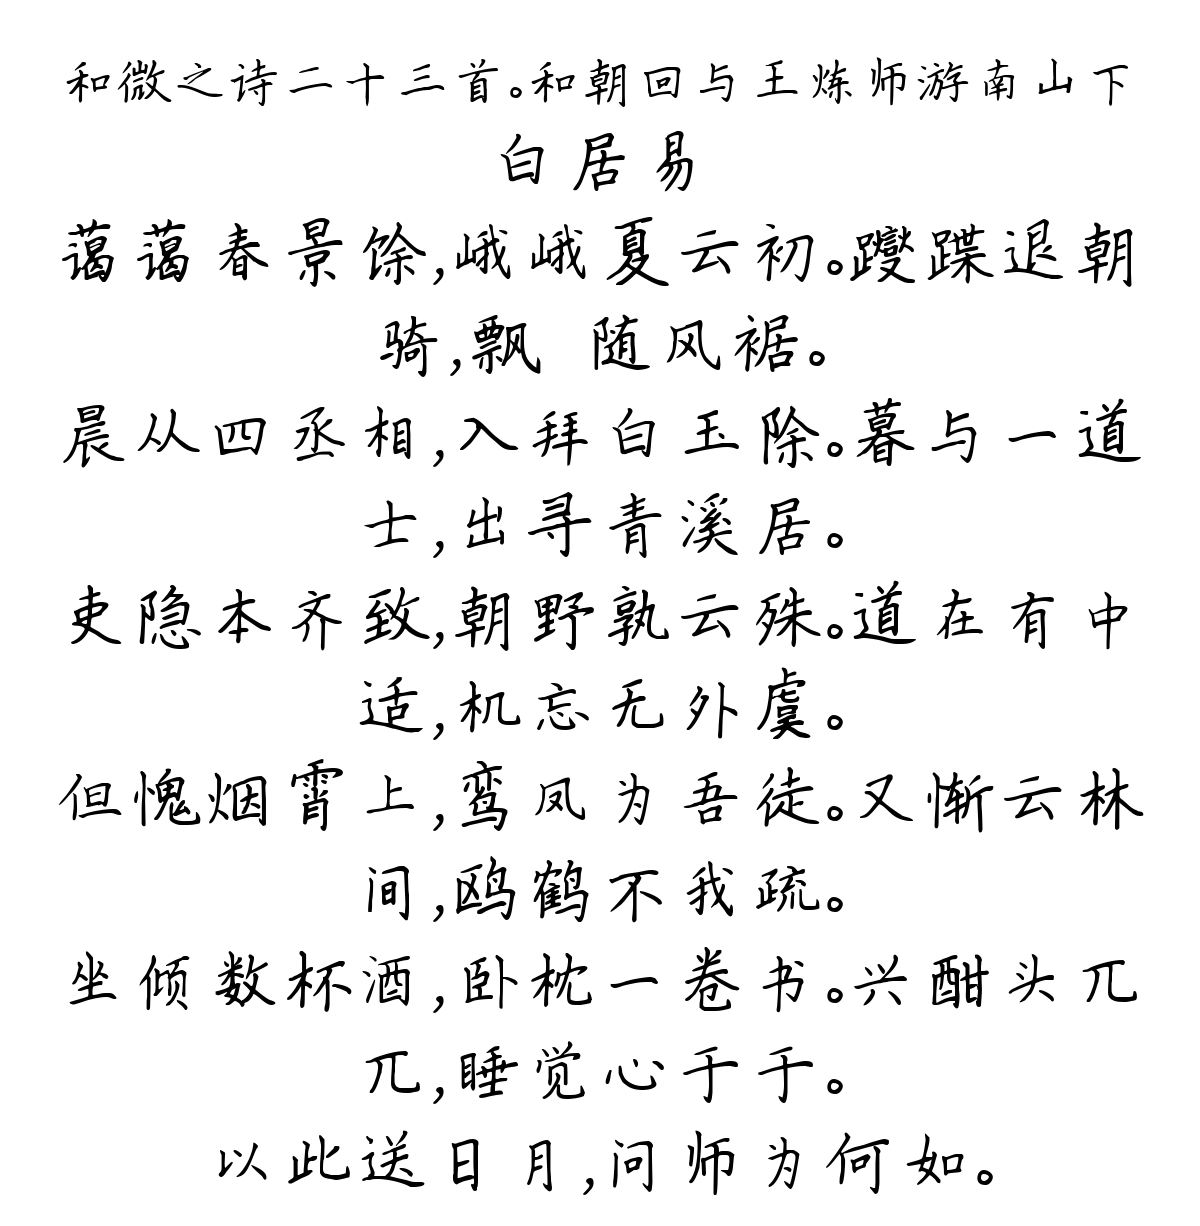 和微之诗二十三首。和朝回与王炼师游南山下
白居易
蔼蔼春景馀,峨峨夏云初。躞蹀退朝
骑,飘 随风裾。
晨从四丞相,入拜白玉除。暮与一道
士,出寻青溪居。
吏隐本齐致,朝野孰云殊。道在有中
适,机忘无外虞。
但愧烟霄上,鸾凤为吾徒。又惭云林
间,鸥鹤不我疏。
坐倾数杯酒,卧枕一卷书。兴酣头兀
兀,睡觉心于于。
以此送日月,问师为何如。